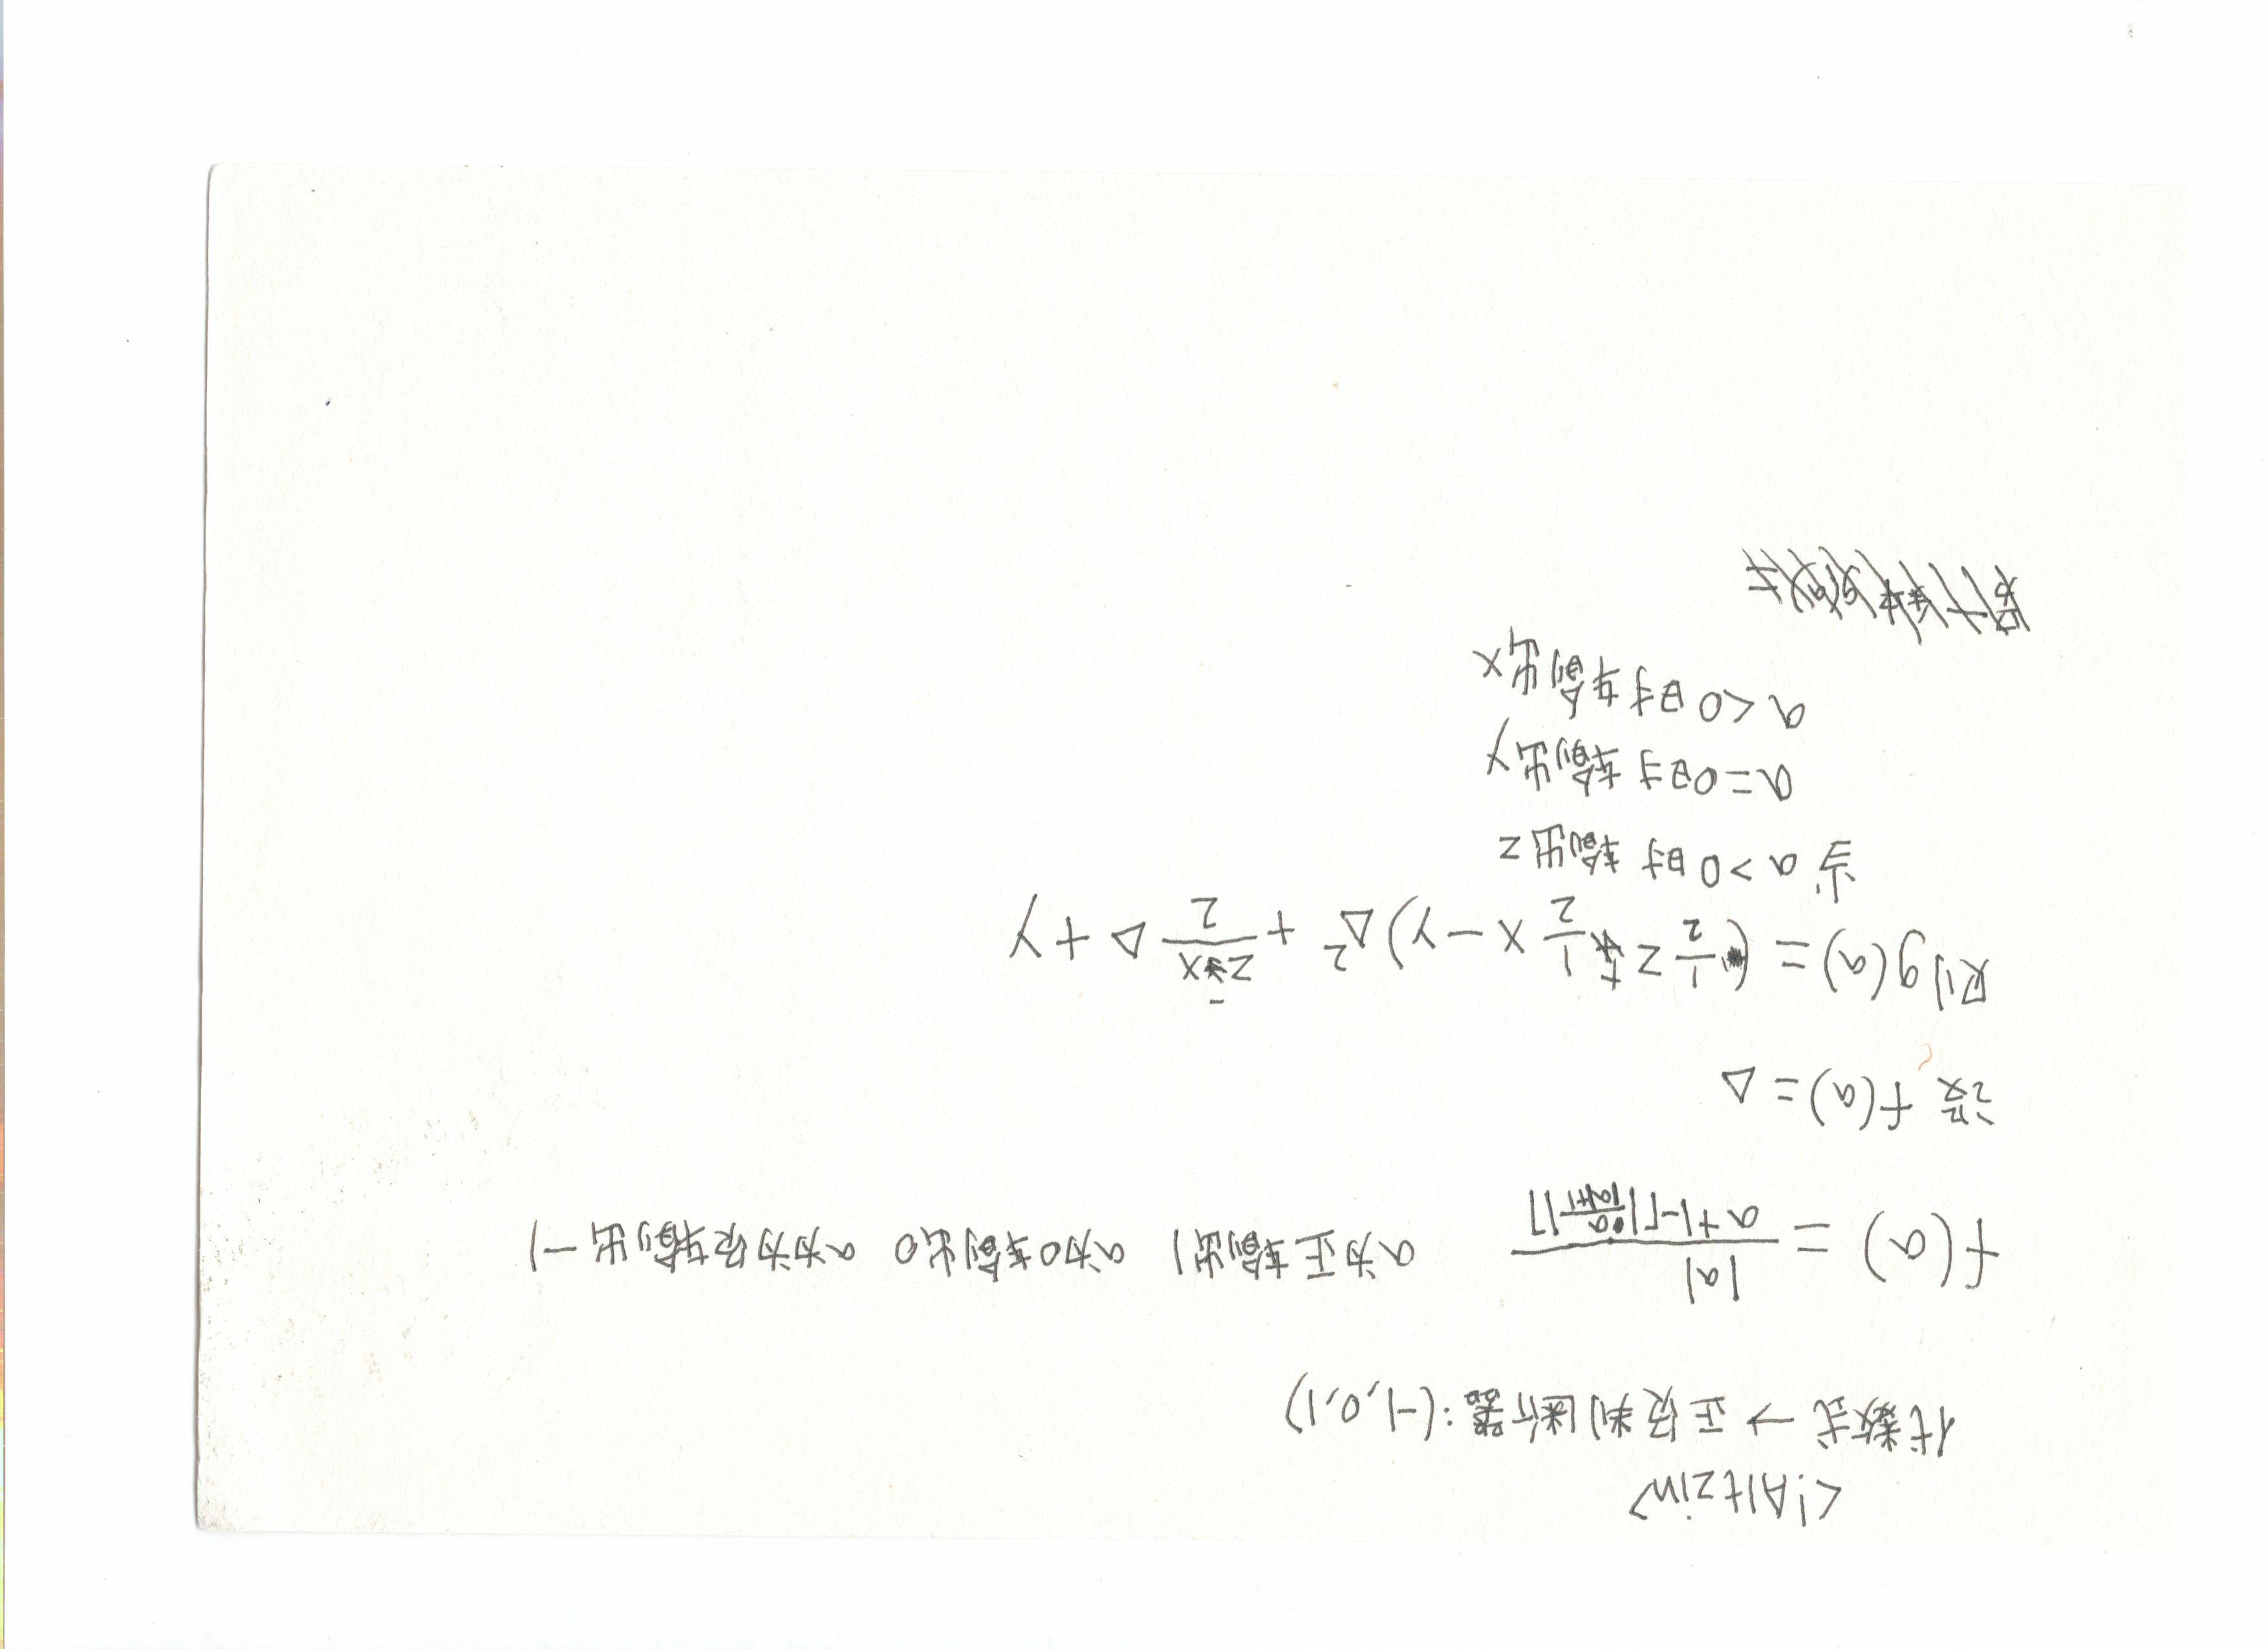 <!Altzin>
代数式→正负判断器:(-1,0,1)
f(a) = |a| / (a+1-⌈|a/(|a|+1)|⌉) a为正输出1 a为0输出0 a为负输出-1
设 f(a)=△
则g(a) = (1/2 z + 1/2 x - y)△² + (z-x)/2 △ + y
当 a>0时 输出z
a=0时 输出y
a<0时 输出x